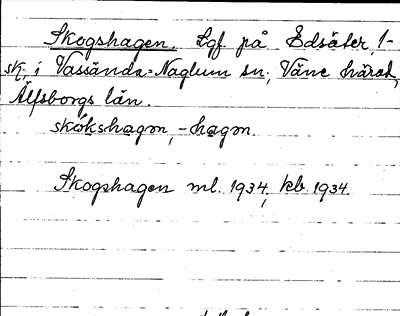 Skogshagen. Lgf. på Edsäter, 1-
sk, i Vassända-Naglum sn, Väne härad,
Älfsborgs län.
skókshagɘn, -hagɘn.
Skogshagen ml. 1934, kb. 1934